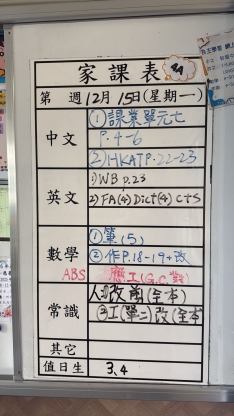 家課表
第 週 12月 15日(星期一)
中文
① 課業單元七
P.4-6
2) HKATP.22-23
英文
1) WB p.23
2) FA(4) Dict(4) CTS
數學
① 筆(5)
② 作P.18-19+改
ABS
工(G.C.
常識
改
(全本)
② 工(單二)改(全本
其它
值日生
3、4